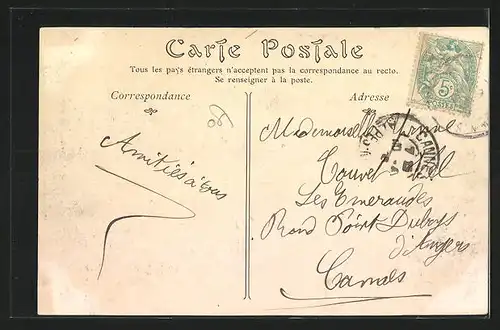 Carte Postale
Tous les pays étrangers n'acceptent pas la correspondance au recto.
Se renseigner à la poste.
Correspondance
Adresse
Amitiés à tous
Mademoiselle
Les Emeraudes
Rond Point Duboys
d'Angers
Cannes
5
CANNES